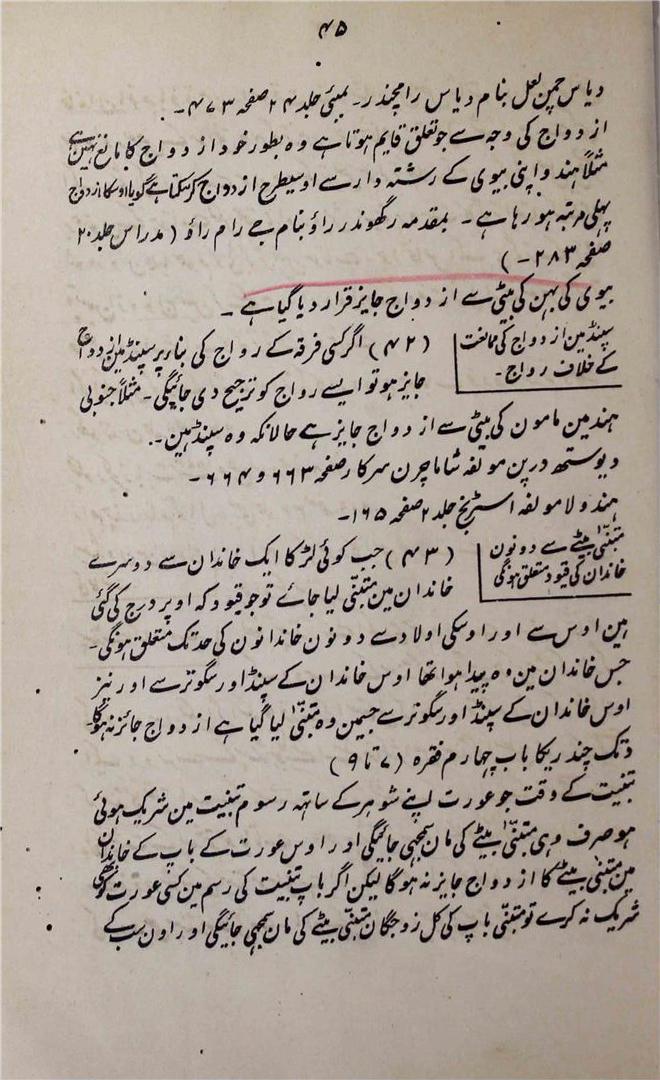 ۴۵
دیاس چمن لعل بنام دیاس رامچندر۔ بمبئی جلد ۲۴ صفحہ ۴۷۳۔
ازدواج کی وجہ سے جو تعلق قایم ہوتا ہے وہ بطور خود ازدواج کا مانع نہین ہے
مثلاً ہندو اپنی بیوی کے رشتہ دار سے اوسیطرح ازدواج کرسکتا ہے گویا اوسکا ازدواج
پہلی مرتبہ ہو رہا ہے۔ بمقدمہ رگھوندر راؤ بنام جے رام راؤ (مدراس جلد ۲۰
صفحہ ۲۸۳۔)
بیوی کی بہن کی بیٹی سے ازدواج جایز قرار دیا گیا ہے۔
سپنڈ مین ازدواج کی ممانعت
کے خلاف رواج۔
(۴۲) اگر کسی فرقہ کے رواج کی بناء پر سپنڈ مین ازدواج
جایز ہو تو ایسے رواج کو ترجیح دی جائیگی۔ مثلاً جنوبی
ہند مین مامون کی بیٹی سے ازدواج جایز ہے حالانکہ وہ سپنڈ ہین۔
دیوستھ درپن مولفہ شاماچرن سرکار صفحہ ۶۶۳ و ۶۶۴۔
ہندو لا مولفہ اسٹرینج جلد ۲ صفحہ ۱۶۵۔
متبنّٰی بیٹے سے دونون
خاندان کی قیود متعلق ہونگی
(۴۳) جب کوئی لڑکا ایک خاندان سے دوسرے
خاندان مین متبنّٰی لیا جائے تو جو قیود کہ اوپر درج کی گئی
ہین اوس سے اور اوسکی اولاد سے دونون خاندانون کی حد تک متعلق ہونگی۔
جس خاندان مین وہ پیدا ہوا تھا اوس خاندان کے سپنڈ اور سگوتر سے اور نیز
اوس خاندان کے سپنڈ اور سگوتر سے جسمین وہ متبنّٰی لیا گیا ہے ازدواج جائز نہ ہوگا۔
دتک چندریکا باب چہارم فقرہ (۷ تا ۹)
تبنیت کے وقت جو عورت اپنے شوہر کے ساتھ رسوم تبنیت مین شریک ہوئی
ہو صرف وہی متبنّٰی بیٹے کی مان سمجھی جائیگی اور اوس عورت کے باپ کے خاندان
مین متبنّٰی بیٹے کا ازدواج جایز نہ ہوگا لیکن اگر باپ تبنیت کی رسم مین کسی عورت کو بھی
شریک نہ کرے تو متبنّٰی باپ کی کل زوجگان متبنّٰی بیٹے کی مان سمجھی جائیگی اور اون سب کے